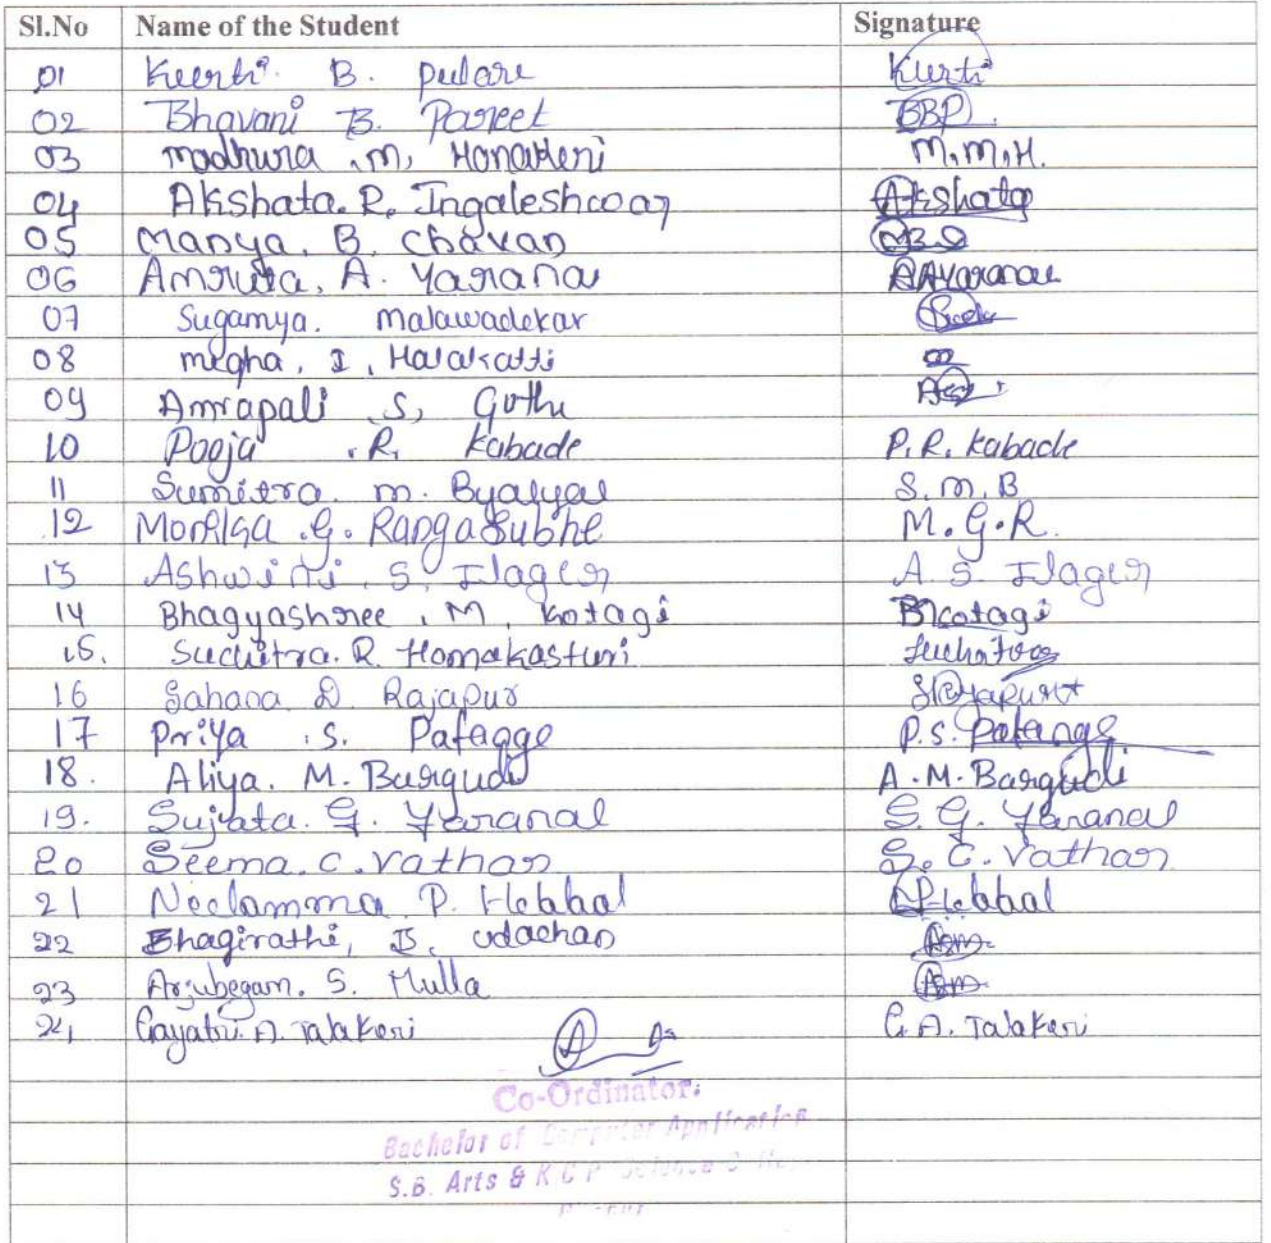 Sl.No Name of the Student Signature
01 Keerti. B. pulare Keerti
02 Bhavani B. Pareet BBP.
03 madhura .m, Honakeri M.M.H.
04 Akshata. R. Ingaleshwar Akshata
05 Manya. B. Chavan
06 Amruta, A. Yaranal AAYaranal
07 Sugamya. malawadekar
08 megha, I, Halakatti
09 Amrapali S, Guthe
10 Pooja .R. Kabade P.R. Kabade
11 Sumitra. m. Byalyal S.M.B
12 Monika .G. Rangasubhe M.G.R.
13 Ashwini. S. Ilager A. S. Ilager
14 Bhagyashree . M, Kotagi BKotagi
15. Suchitra. R. Homakasturi Suchitra
16 Sahana D. Rajapur
17 Priya .S. Patange P.S. Patange
18. Aliya. M. Bargudi A.M. Bargudi
19. Sujata. G. Yaranal S. G. Yaranal
20 Seema. C. Vathar S. C. Vathar
21 Neelamma. P. Hebbal P. Hebbal
22 Bhagirathi, B. Udachan
23 Arjubegam. S. Mulla
24, Gayatri. A. Talakeri G.A. Talakeri
Co-Ordinator.
Bachelor of Computer Application
S.B. Arts & K C P Science